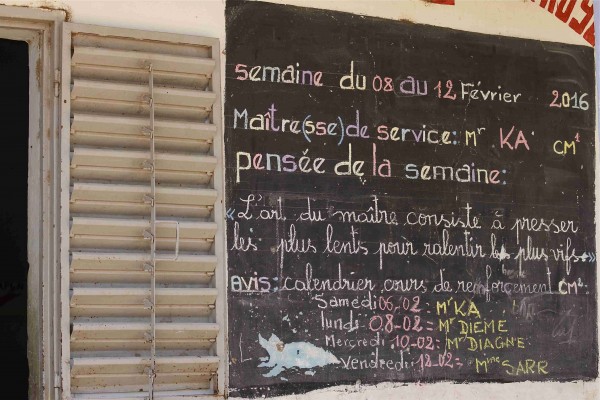 semaine du 08 au 12 Février 2016
Maître(sse) de service: Mr KA CM1
pensée de la semaine:
« L'art du maître consiste à presser
les plus lents pour ralentir les plus vifs. »
avis: calendrier cours de renforcement CM2:
Samedi 06-02: Mr KA
lundi 08-02: Mr DIEME
Mercredi 10-02: Mr DIAGNE
Vendredi 12-02: Mme SARR